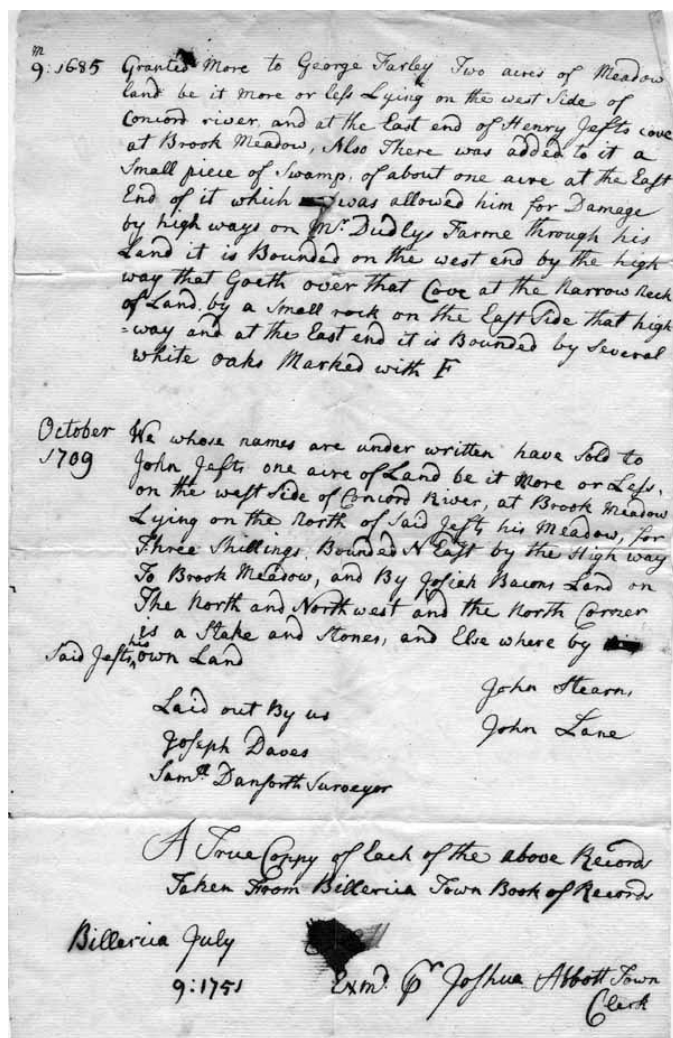 m
9:1685 Granted More to George Farley Two acres of Meadow
land be it more or less Lying on the west Side of
Concord river, and at the East end of Henry Jefts cove
at Brook Meadow, Also There was added to it a
Small piece of Swamp, of about one acre at the East
End of it which was allowed him for Damage
by high ways on Mr. Dudlys Farme through his
Land it is Bounded on the west end by the high
way that Goeth over that Cove at the Narrow Neck
of Land by a Small rock on the East Side that high
=way and at the East end it is Bounded by Several
white oaks Marked with F
October We whose names are under written have Sold to
1709 John Jefts one acre of Land be it More or Less,
on the west Side of Concord River, at Brook Meadow
Lying on the North of Said Jefts his Meadow, for
Three Shillings. Bounded N East by the High way
To Brook Meadow, and By Josiah Bacons Land on
The North and North west and the North Corner
is a Stake and Stones, and Else where by
Said Jefts his own Land
John Stearns
Laid out By us
John Lane
Joseph Daves
Samll Danforth Surveyor
A True Coppy of Each of the above Records
Taken From Billerica Town Book of Records
Billerica July
9:1751 Exmd Pr Joshua Abbott Town
Clerk